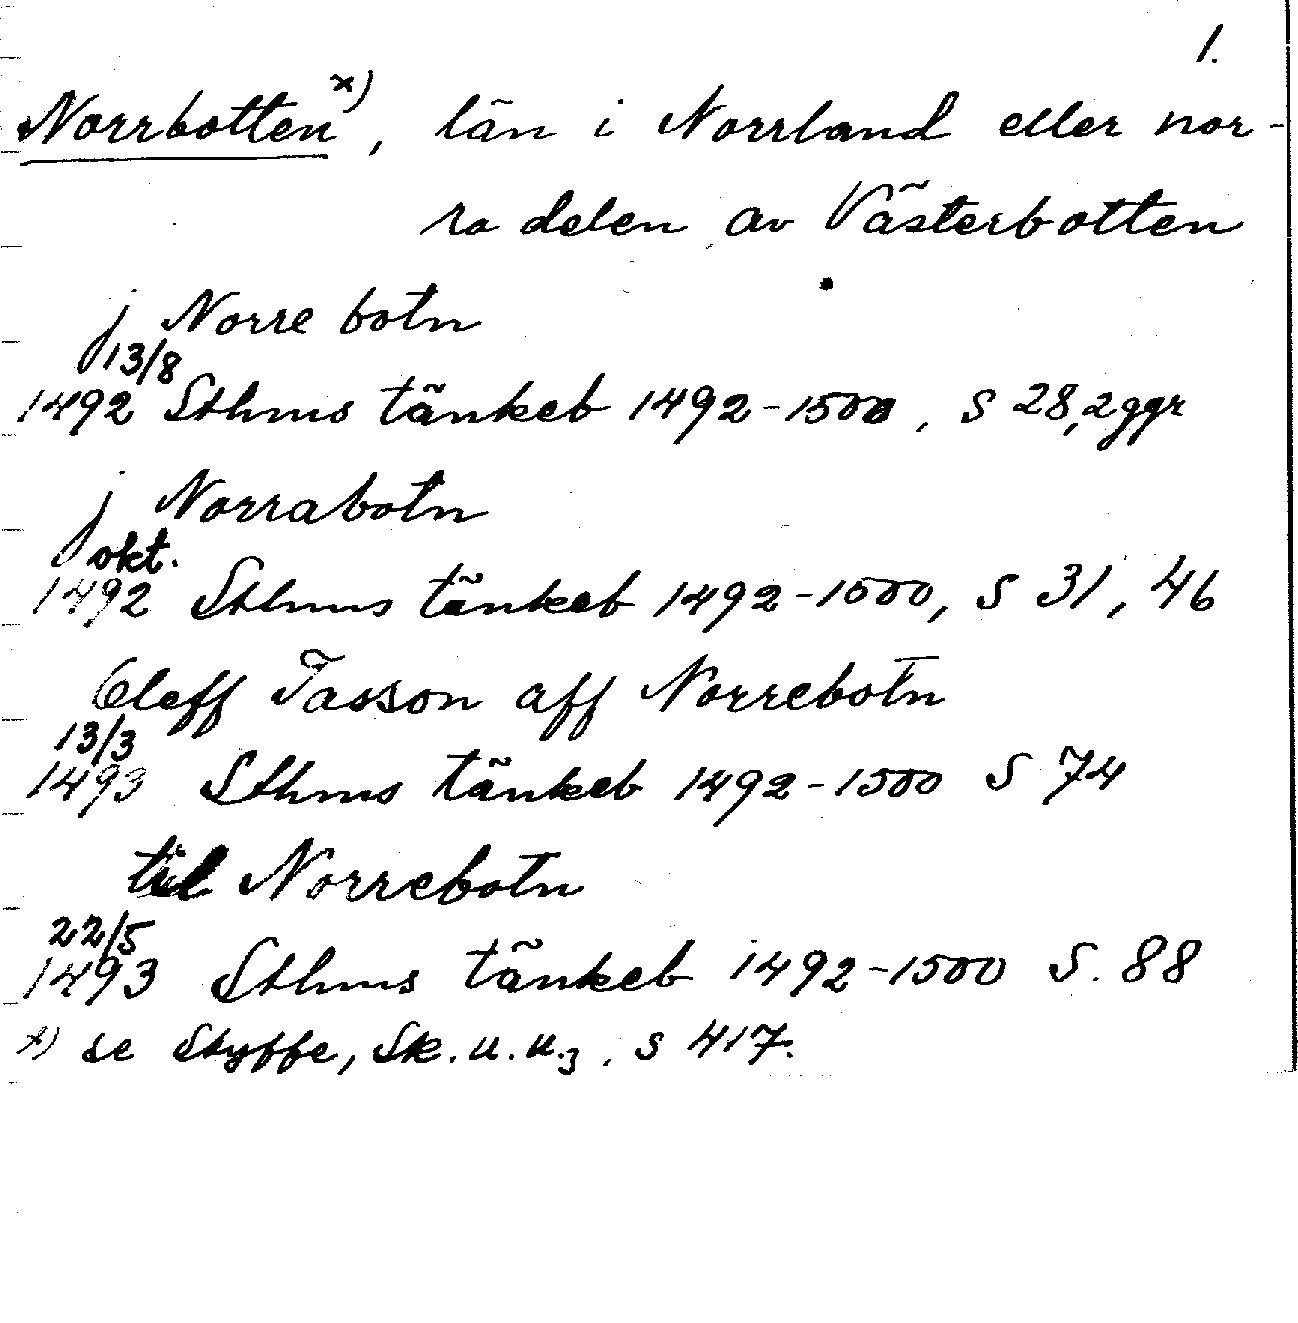 1.
Norrbotten x), län i Norrland eller nor-
ra delen av Västerbotten
j Norre botn
13/8
1492 Sthms tänkeb 1492-1500, S 28, 2 ggr
j Norrabotn
okt.
1492 Sthms tänkeb 1492-1500, S 31, 46
Oleff Jasson aff Norrebotn
13/3
1493 Sthms tänkeb 1492-1500 S 74
til Norrebotn
22/5
1493 Sthms tänkeb 1492-1500 S. 88
x) se Styffe, Sk. u. u. 3, s 417.